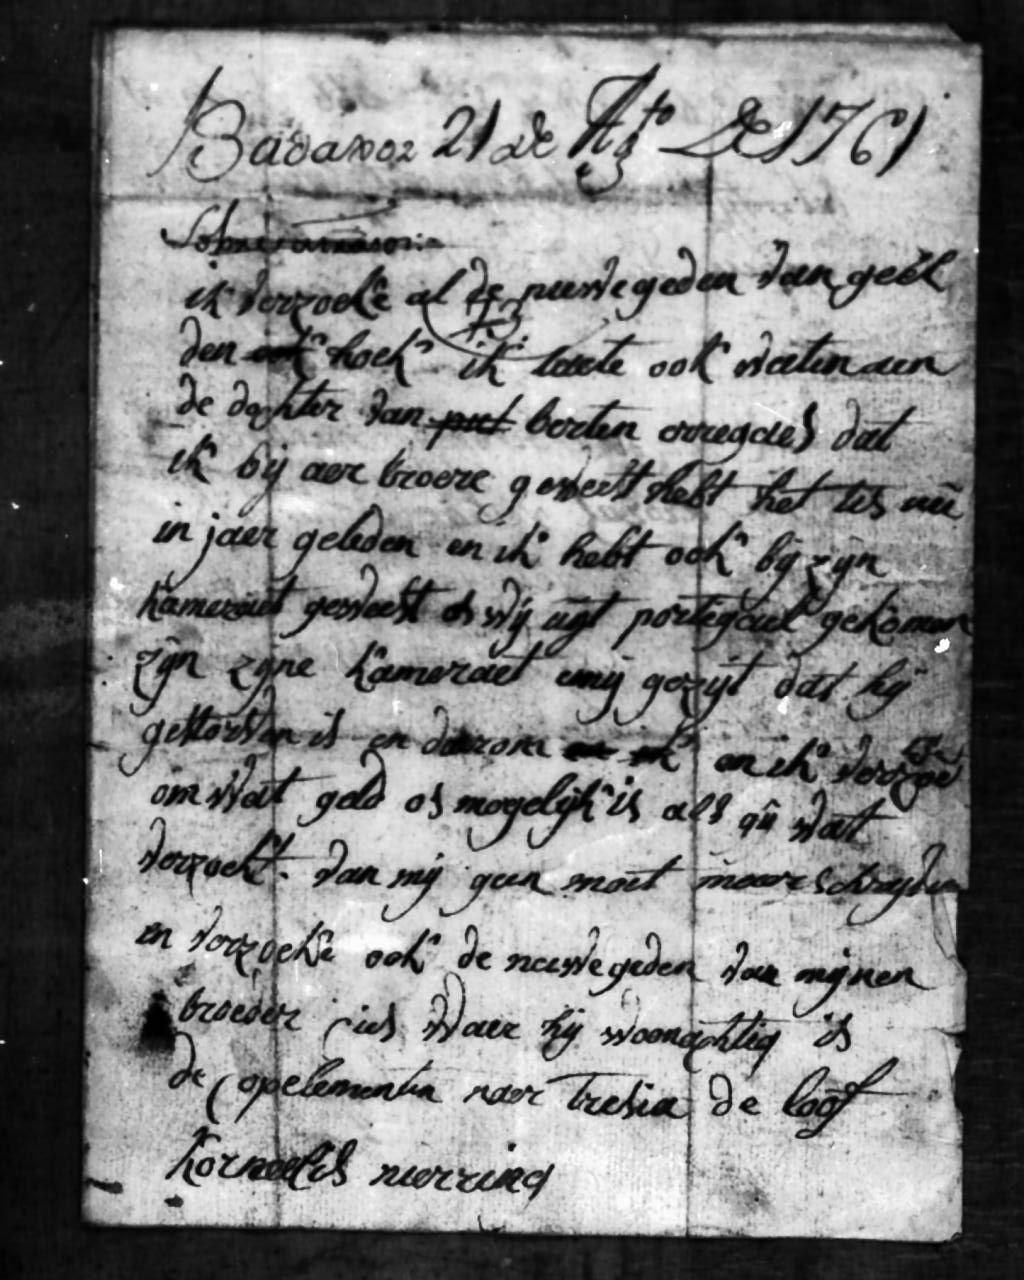 Badaxoz 21 de Ag.to de 1761
ik verzoeke al de nuwegeden van geel
den hoek ik laete ook waten aen
de dochter van berten orregaes dat
ik bij aer broere geweest hebt het is nu
in jaer geleden en ik hebt ook bij zijn
kameraet geweest os wij uijt portegael gekomen
zijn zijne kameraet emij gezijt dat hij
gestorven is en daerom en ik verzoe
om wat geld os mogelijk is als gij wat
verzoekt van mij geen moet maer schryven
en verzoeke ook de nuwegeden van mijnen
broeder ies waer hij woonachtig is
de copelementen naer tresia de loof
kornelis nierrinq